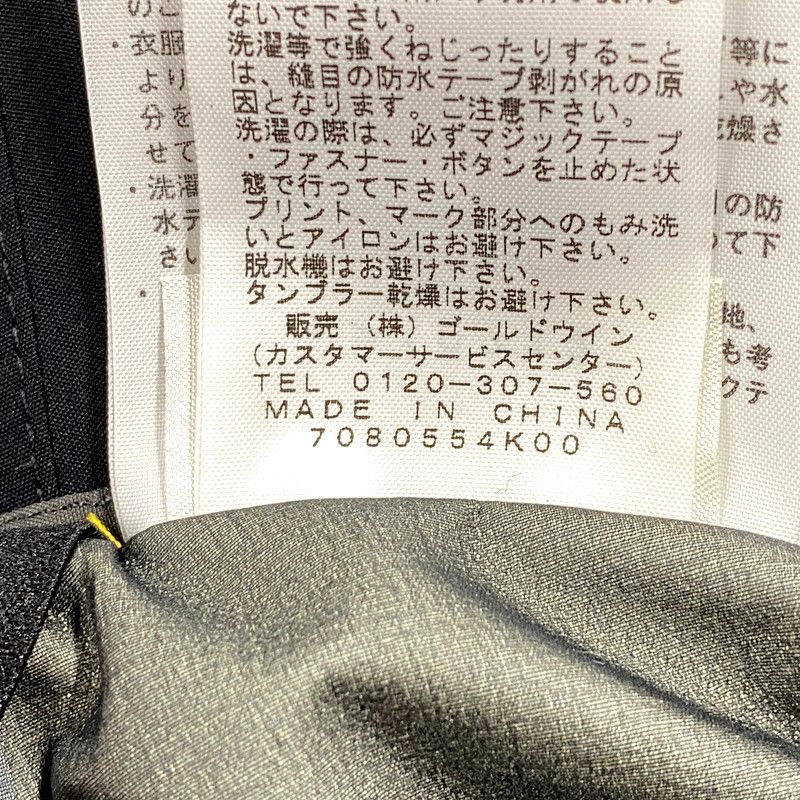 ないで下さい。
洗濯等で強くねじったりすること
は、縫目の防水テープ剥がれの原
因となります。ご注意下さい。
洗濯の際は、必ずマジックテープ
・ファスナー・ボタンを止めた状
態で行って下さい。
プリント、マーク部分へのもみ洗
いとアイロンはお避け下さい。
脱水機はお避け下さい。
タンブラー乾燥はお避け下さい。
販売 (株) ゴールドウイン
(カスタマーサービスセンター)
TEL 0120-307-560
MADE IN CHINA
7080554K00
・衣服
より
分を
せて
・洗濯
水テ
さい
等に
や水
乾燥さ
の防
って下
地、
も考
クテ